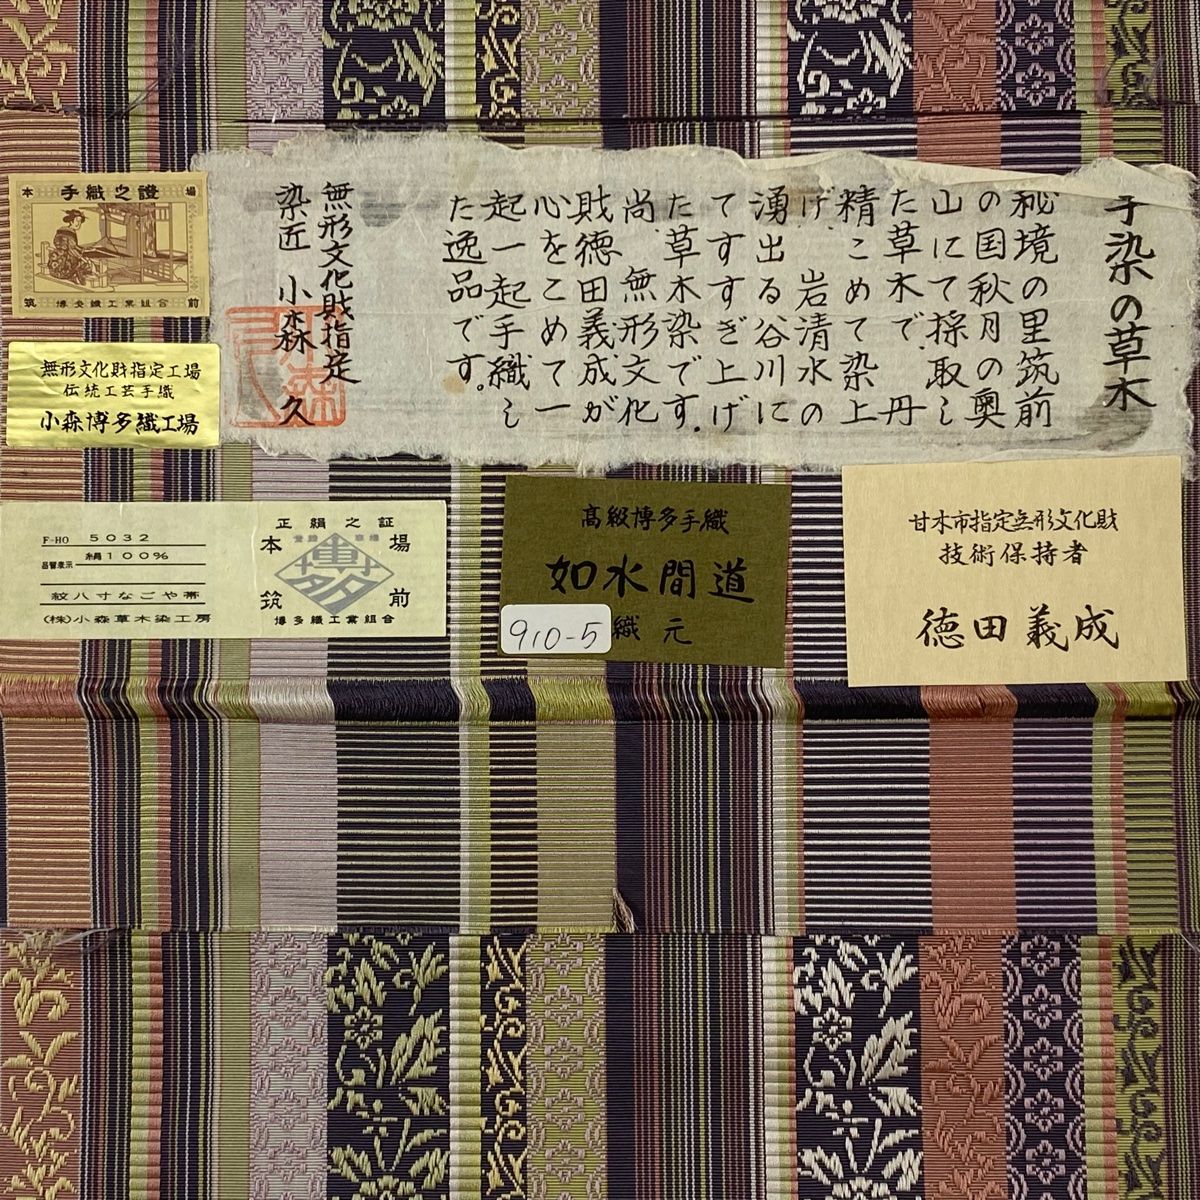 手染の草木
秘境の里筑前
の国秋月の奥
山にて採取し
た草木で丹
精こめて染上
げ岩清水の
湧出る谷川に
てすすぎ上げ
た草木染です。
尚、無形文化
財徳田義成が
心をこめて一
起一起手織し
た逸品です。
無形文化財指定
染匠 小森 久
本 手織之證 場
筑 博多織工業組合 前
無形文化財指定工場
伝統工芸手織
小森博多織工場
F-HO 5032
絹100%
品質表示
紋八寸なごや帯
(株)小森草木染工房
正絹之証
本 場
博多
筑 前
博多織工業組合
高級博多手織
如水間道
910-5
織元
甘木市指定無形文化財
技術保持者
徳田義成